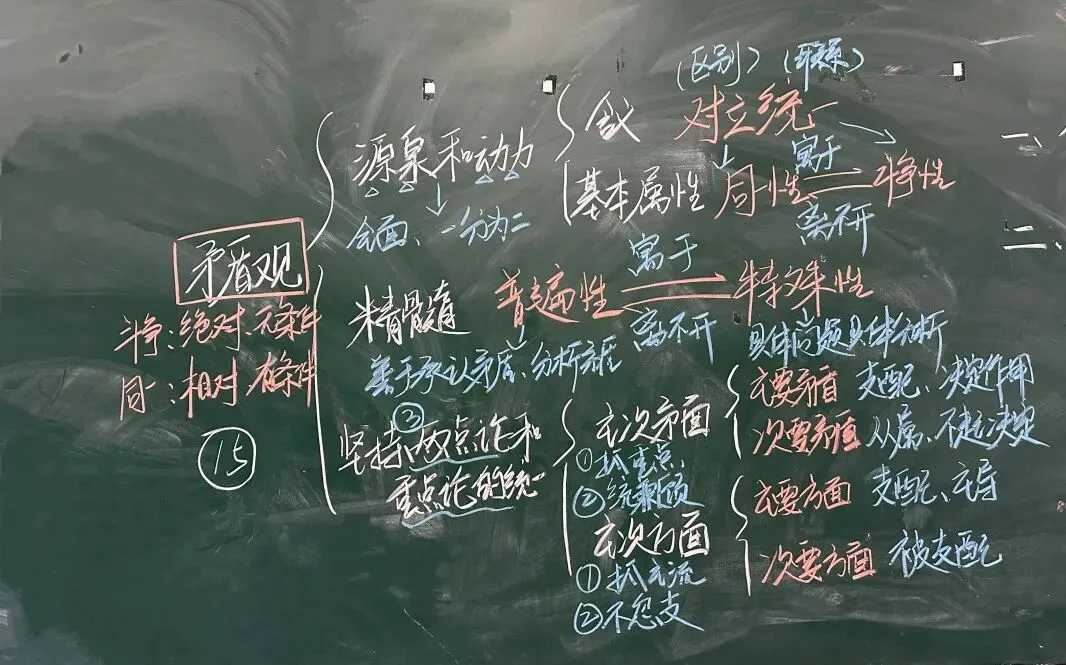 (区别) (联系)
含义 对立统一
源泉和动力
基本属性 同一性 寓于 斗争性
离不开
全面、一分为二
矛盾观
寓于
普遍性 特殊性
离不开
精髓
斗争:绝对、无条件
同一:相对、有条件
善于承认矛盾、分析矛盾
具体问题具体分析
⑮
③
坚持两点论和
重点论的统一
主次矛盾
①抓重点
②统筹兼顾
主要矛盾 支配、决定作用
次要矛盾 从属、不起决定
主次方面
①抓主流
②不忽支
主要方面 支配、主导
次要方面 被支配
一、
二、